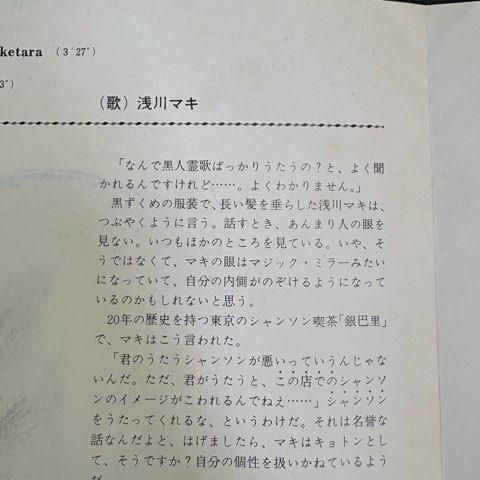 ketara (3'27")
3")
(歌) 浅川マキ
「なんで黒人霊歌ばっかりうたうの?と、よく聞
かれるんですけれど……。よくわかりません。」
黒ずくめの服装で、長い髪を垂らした浅川マキは、
つぶやくように言う。話すとき、あんまり人の眼を
見ない。いつもほかのところを見ている。いや、そ
うではなくて、マキの眼はマジック・ミラーみたい
になっていて、自分の内側がのぞけるようになって
いるのかもしれないと思う。
20年の歴史を持つ東京のシャンソン喫茶「銀巴里」
で、マキはこう言われた。
「君のうたうシャンソンが悪いっていうんじゃな
いんだ。ただ、君がうたうと、この店でのシャンソ
ンのイメージがこわれるんでねえ……」シャンソン
をうたってくれるな、というわけだ。それは名誉な
話なんだよと、はげましたら、マキはキョトンとし
て、そうですか?自分の個性を扱いかねているよう